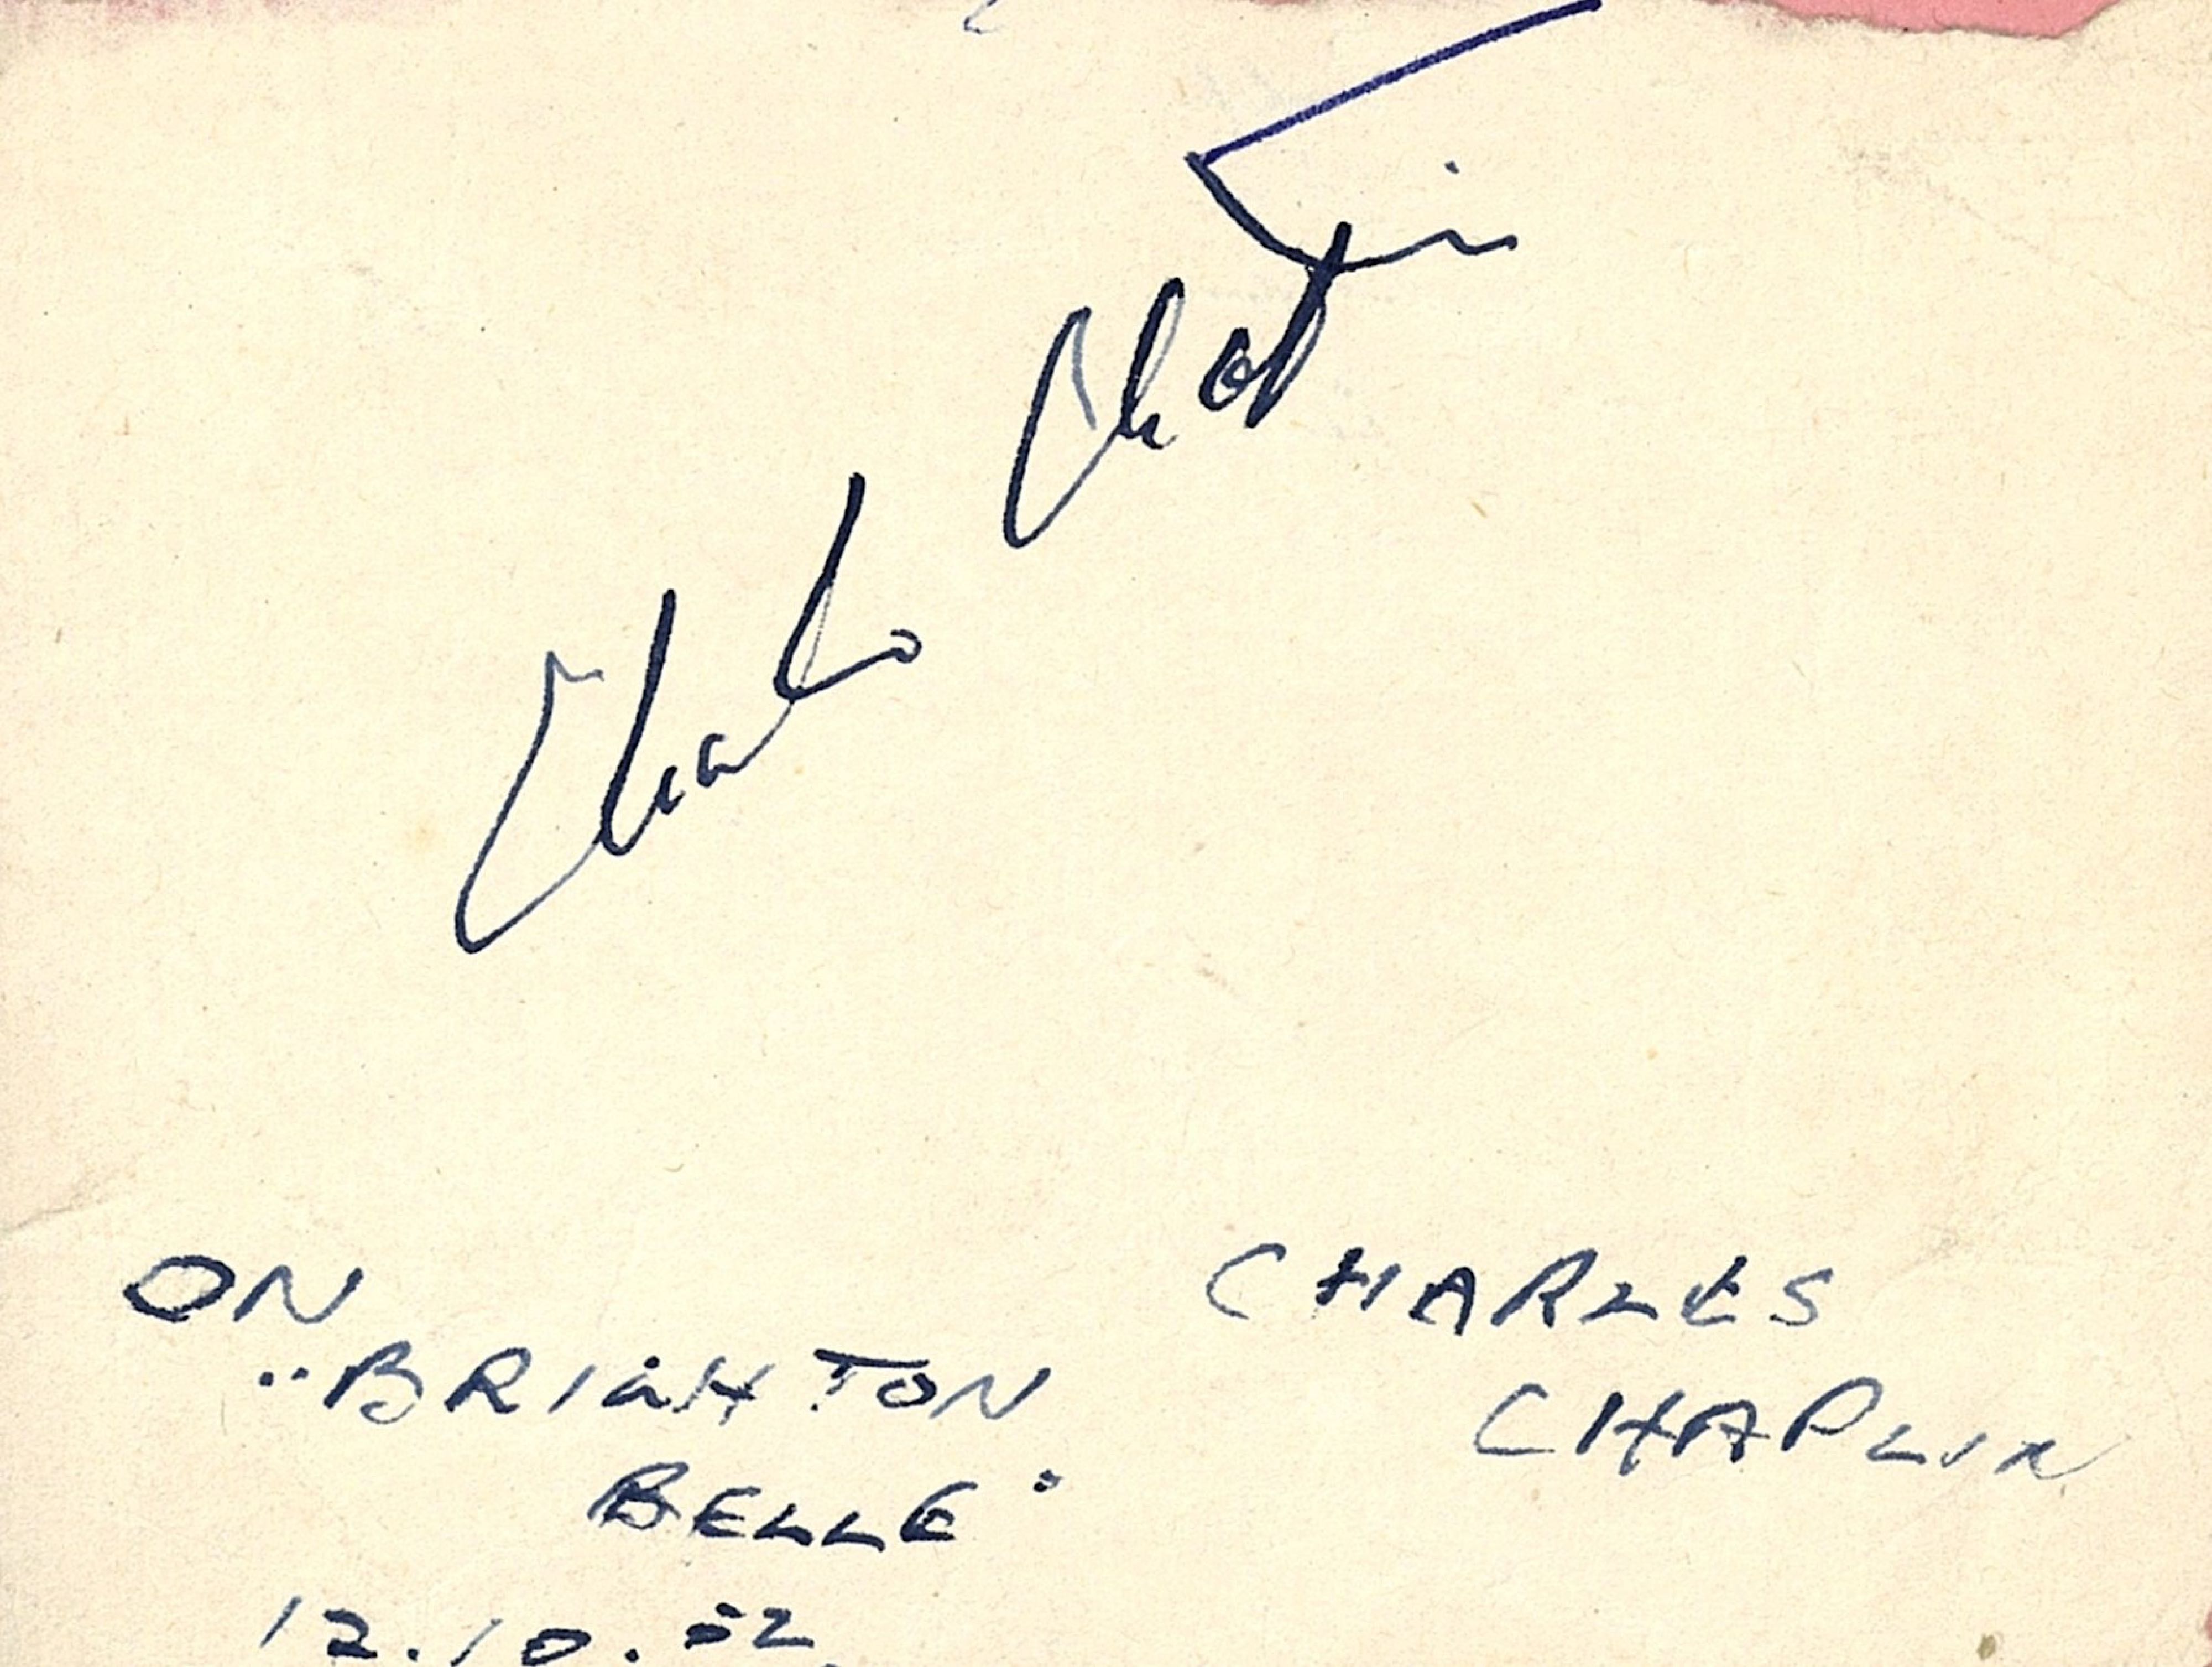 Charles Chaplin
ON
"BRIGHTON
BELLE"
12.10.52.
CHARLES
CHAPLIN